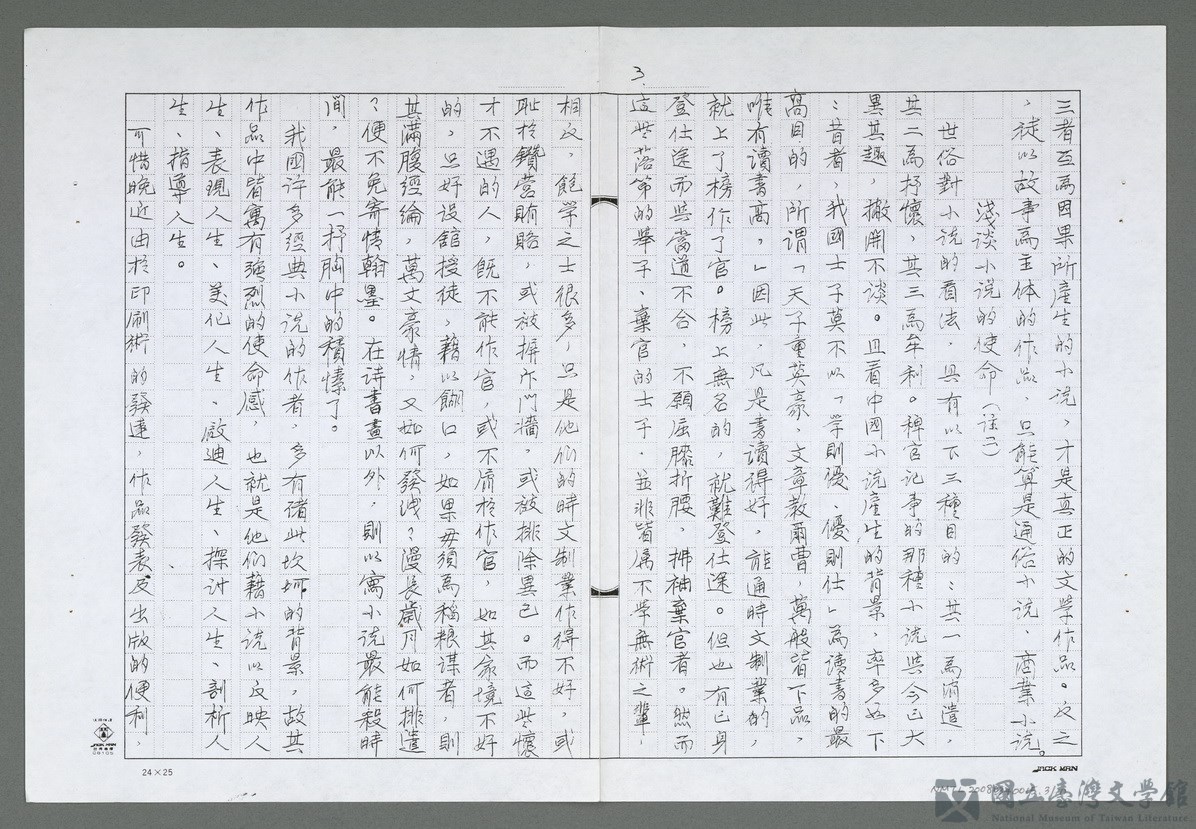 3
三者互為因果所產生的小说，才是真正的文学作品。反之
，徒以故事為主体的作品，只能算是通俗小说、商業小说。
淺谈小说的使命（註二）
世俗對小说的看法，具有以下三種目的：其一為消遣，
其二為抒懷，其三為牟利。稗官记事的那種小说与今已大
異其趣，撇開不谈。且看中國小说產生的背景，率多如下
：昔者，我國士子莫不以「学則優、優則仕」為读書的最
高目的，所謂「天子重英豪，文章教爾曹，萬般皆下品，
唯有读書高，」因此，凡是書读得好，能通時文制業的，
就上了榜作了官。榜上無名的，就難登仕途。但也有已身
登仕途而与當道不合，不願屈膝折腰，拂袖棄官者。然而
這些落第的舉子、棄官的士子，並非皆属不学無術之輩，
相反，飽学之士很多，只是他们的時文制業作得不好，或
恥於鑽營賄賂，或被摒斥门牆，或被排除異己。而這些懷
才不遇的人，既不能作官，或不屑於作官，如其家境不好
的，只好设館授徒，藉以餬口，如果毋須為稻粮谋者，則
其满腹經綸，萬丈豪情，又如何發洩？漫長歲月如何排遣
？便不免寄情翰墨。在诗書畫以外，則以寫小说最能殺時
間，最能一抒胸中的積愫了。
我國许多經典小说的作者，多有诸此坎坷的背景，故其
作品中皆寓有強烈的使命感，也就是他们藉小说以反映人
生、表現人生、美化人生、啟迪人生、探讨人生、剖析人
生、指導人生。
可惜晚近由於印刷術的發達，作品發表及出版的便利，
24×25
JACK MAN
國立臺灣文学館
National Museum of Taiwan Literature